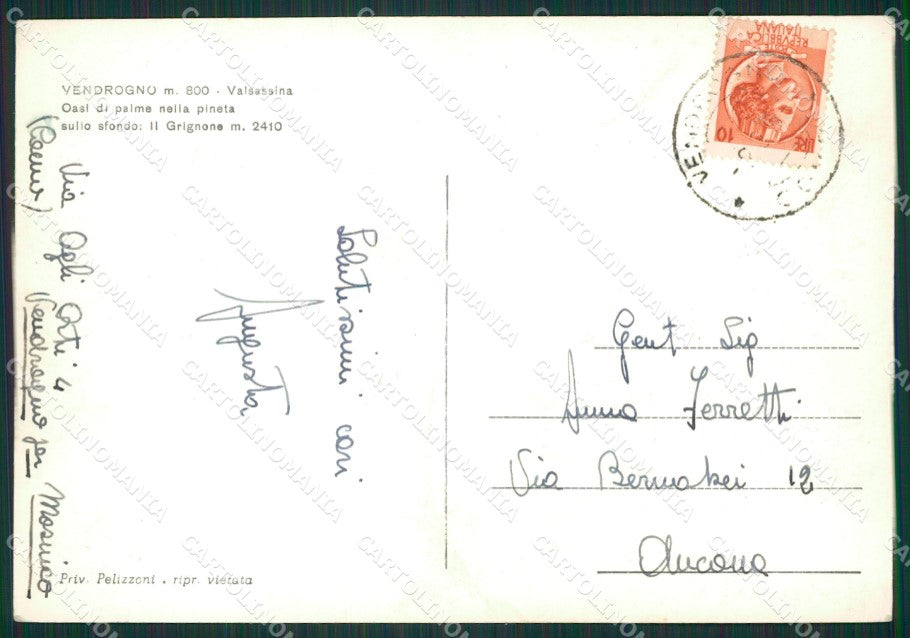 VENDROGNO m. 800 - Valsassina
Oasi di palme nella pineta
sullo sfondo: Il Grignone m. 2410
REPVBBLICA
ITALIANA
POSTE
LIRE 10
Salutissimi cari
Augusta
Via Agli Orti 4
Vendrogno per Mosnico
(Como)
Gent Sig
Anna Ferretti
Via Bernabei 12
Ancona
Priv. Pelizzoni . ripr. vietata
CARTOLINOMANIA